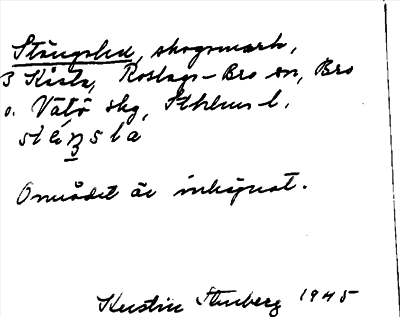 Stängsla, skogsmark,
3 Kista, Roslags-Bro sn, Bro
o. Vätö skg, Sthlms l.
stéŋsla
Området är inhägnat.
Kerstin Stenberg 1945